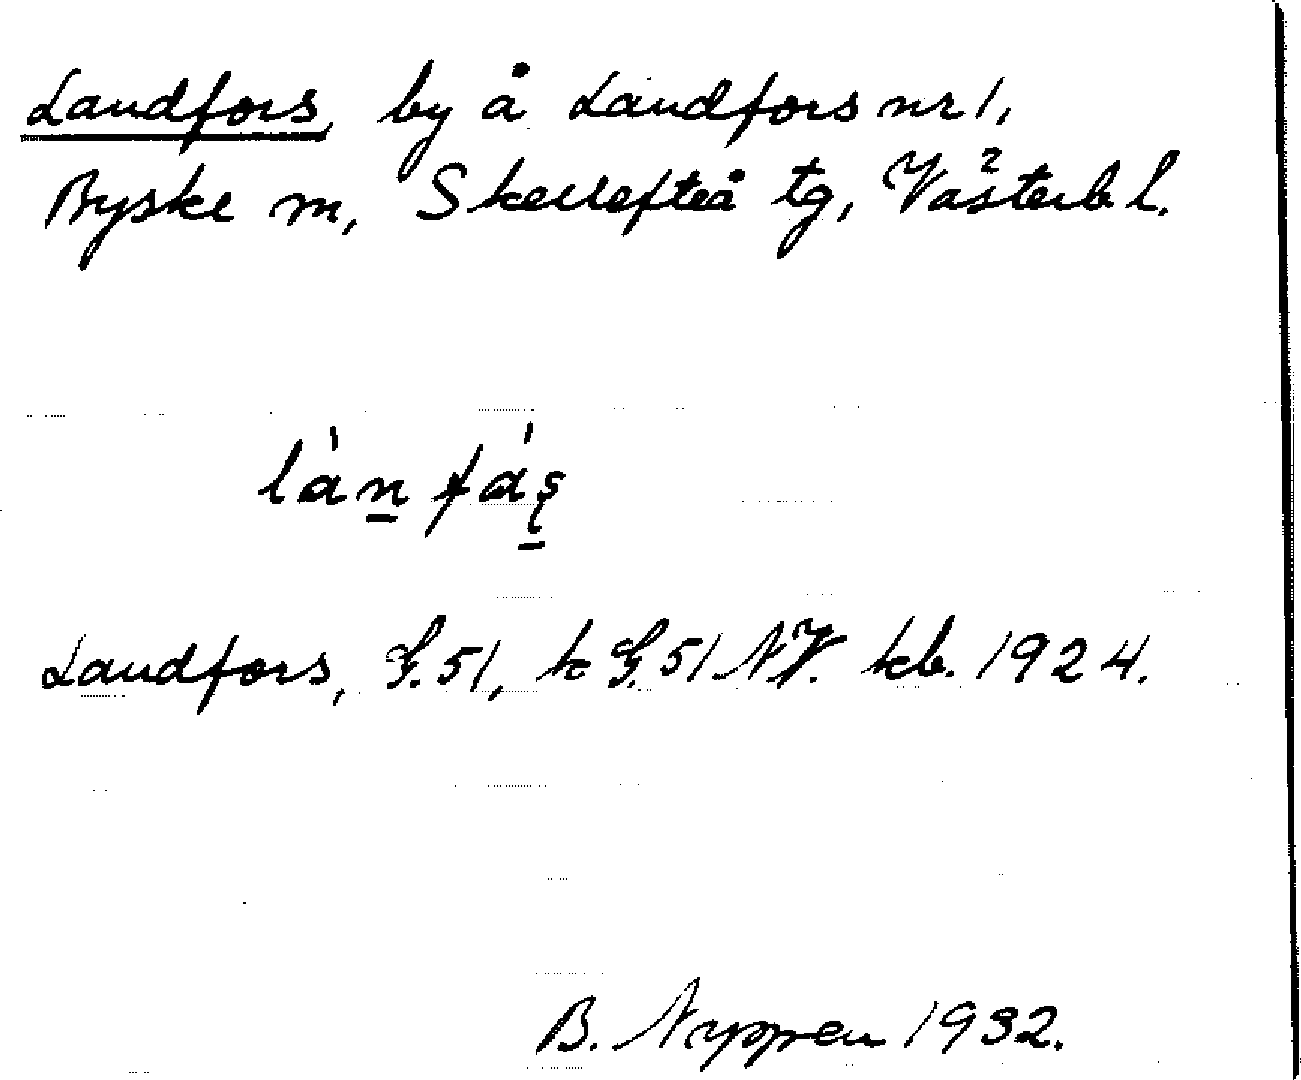 Landfors, by å Landfors nr 1,
Byske m, Skellefteå tg, Västerb l.
la'n fa's
Landfors, G. 51, k G. 51 NV. kb. 1924.
B. Nyppen 1932.